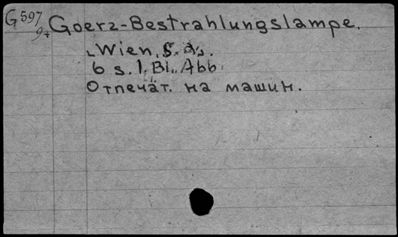 G 597
94 Goerz-Bestrahlungslampe.
Wien, S. a.
6 s. 1. Bl., Abb.
Отпечат. на машин.